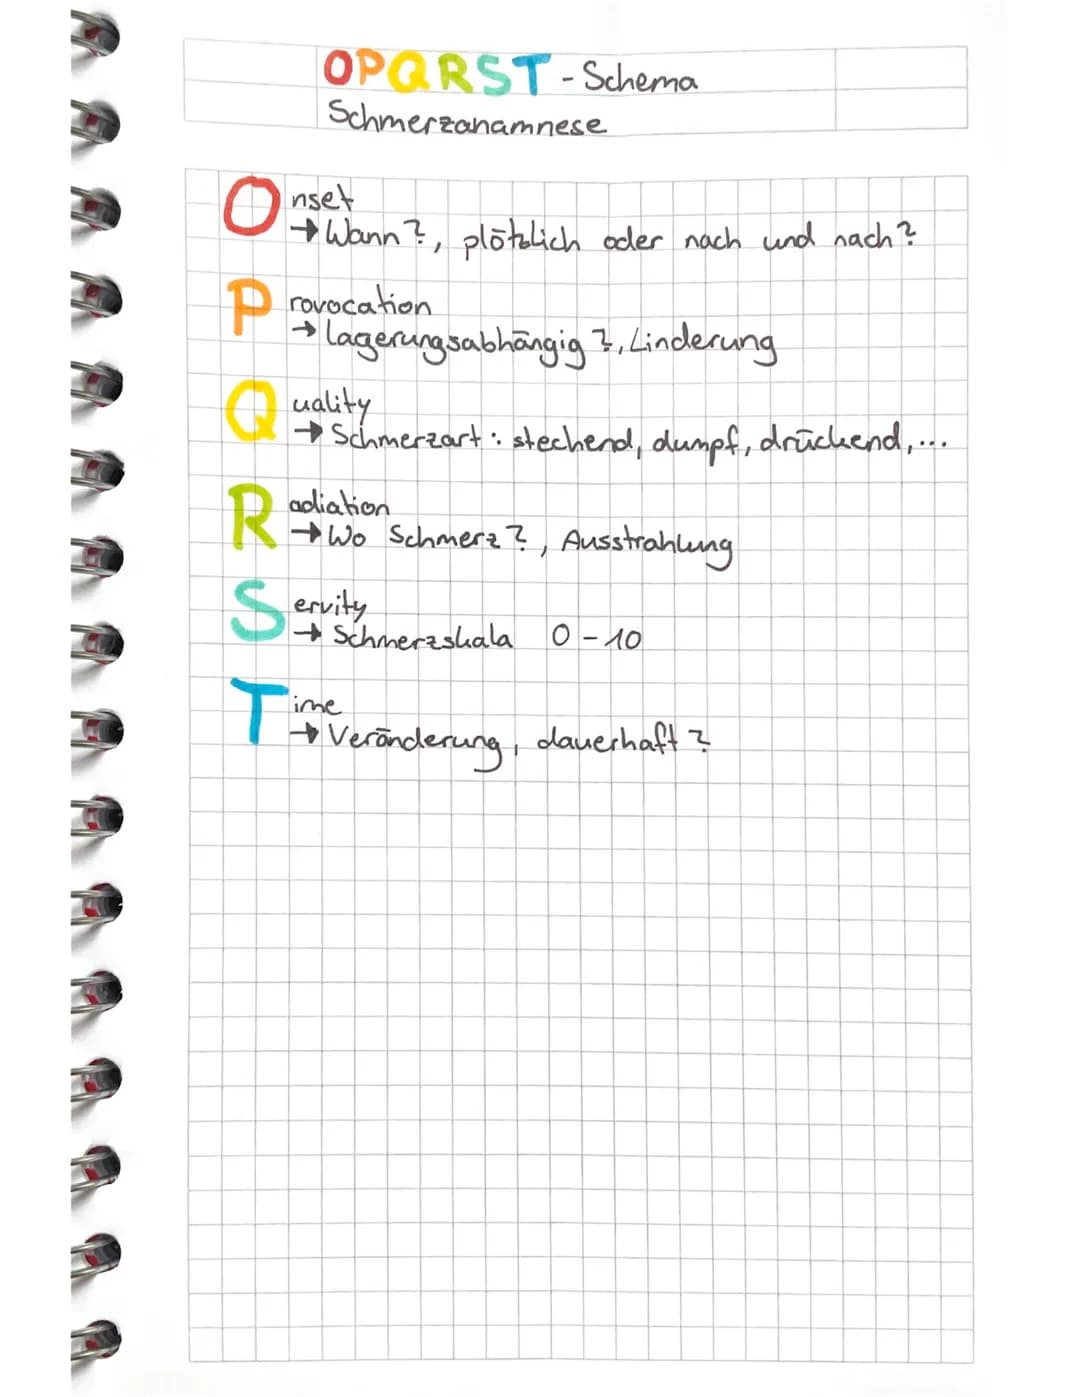 OPQRST - Schema
Schmerzanamnese
Onset
→ Wann?, plötzlich oder nach und nach?
Provocation
→ Lagerungsabhängig?, Linderung
Quality
→ Schmerzart: stechend, dumpf, drückend, ...
Radiation
→ Wo Schmerz?, Ausstrahlung
Servity
→ Schmerzskala 0 - 10
Time
→ Veränderung, dauerhaft?